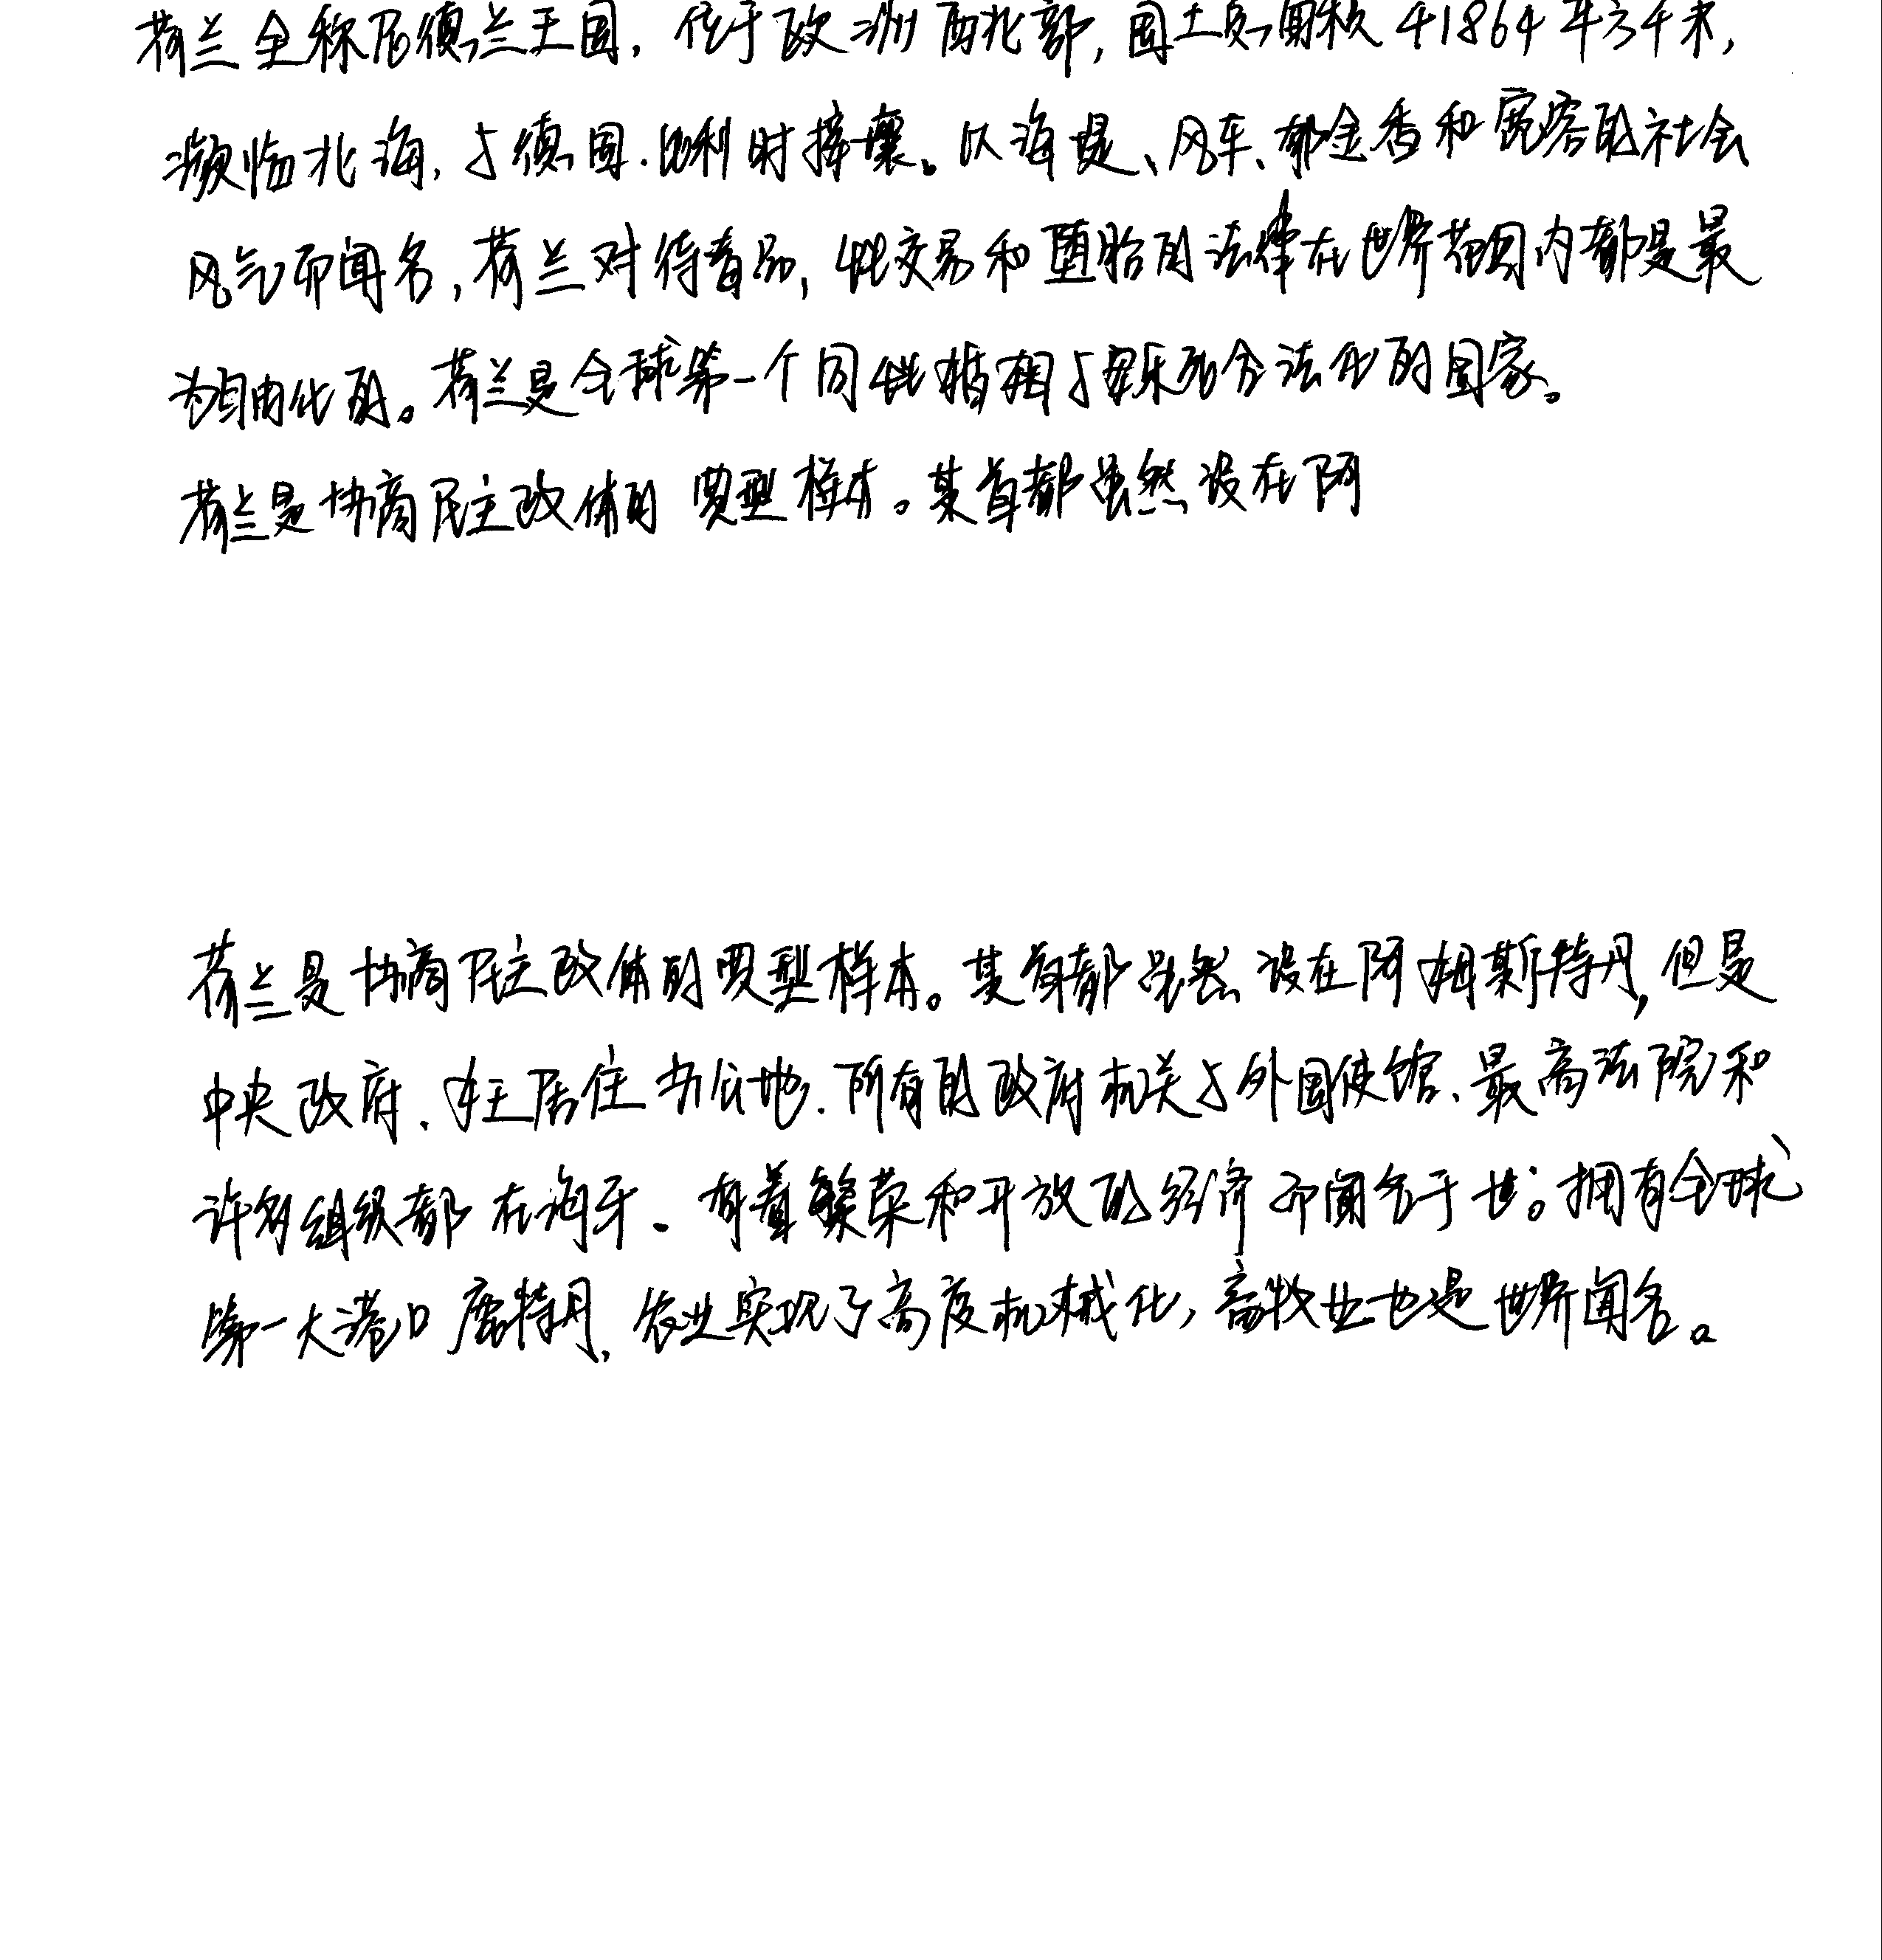 荷兰全称尼德兰王国，位于欧洲西北部，国土总面积41864平方千米，
濒临北海，与德国、比利时接壤。以海堤、风车、郁金香和宽容的社会
风气而闻名，荷兰对待毒品，性交易和堕胎的法律在世界范围内都是最
为自由化的。荷兰是全球第一个同性婚姻与安乐死合法化的国家。
荷兰是协商民主政体的典型样本。其首都虽然设在阿
荷兰是协商民主政体的典型样本。其首都虽然设在阿姆斯特丹，但是
中央政府、女王居住办公地、所有的政府机关与外国使馆、最高法院和
许多组织都在海牙。有着繁荣和开放的经济而闻名于世。拥有全球
第一大港口鹿特丹，农业实现了高度机械化，畜牧业也是世界闻名。